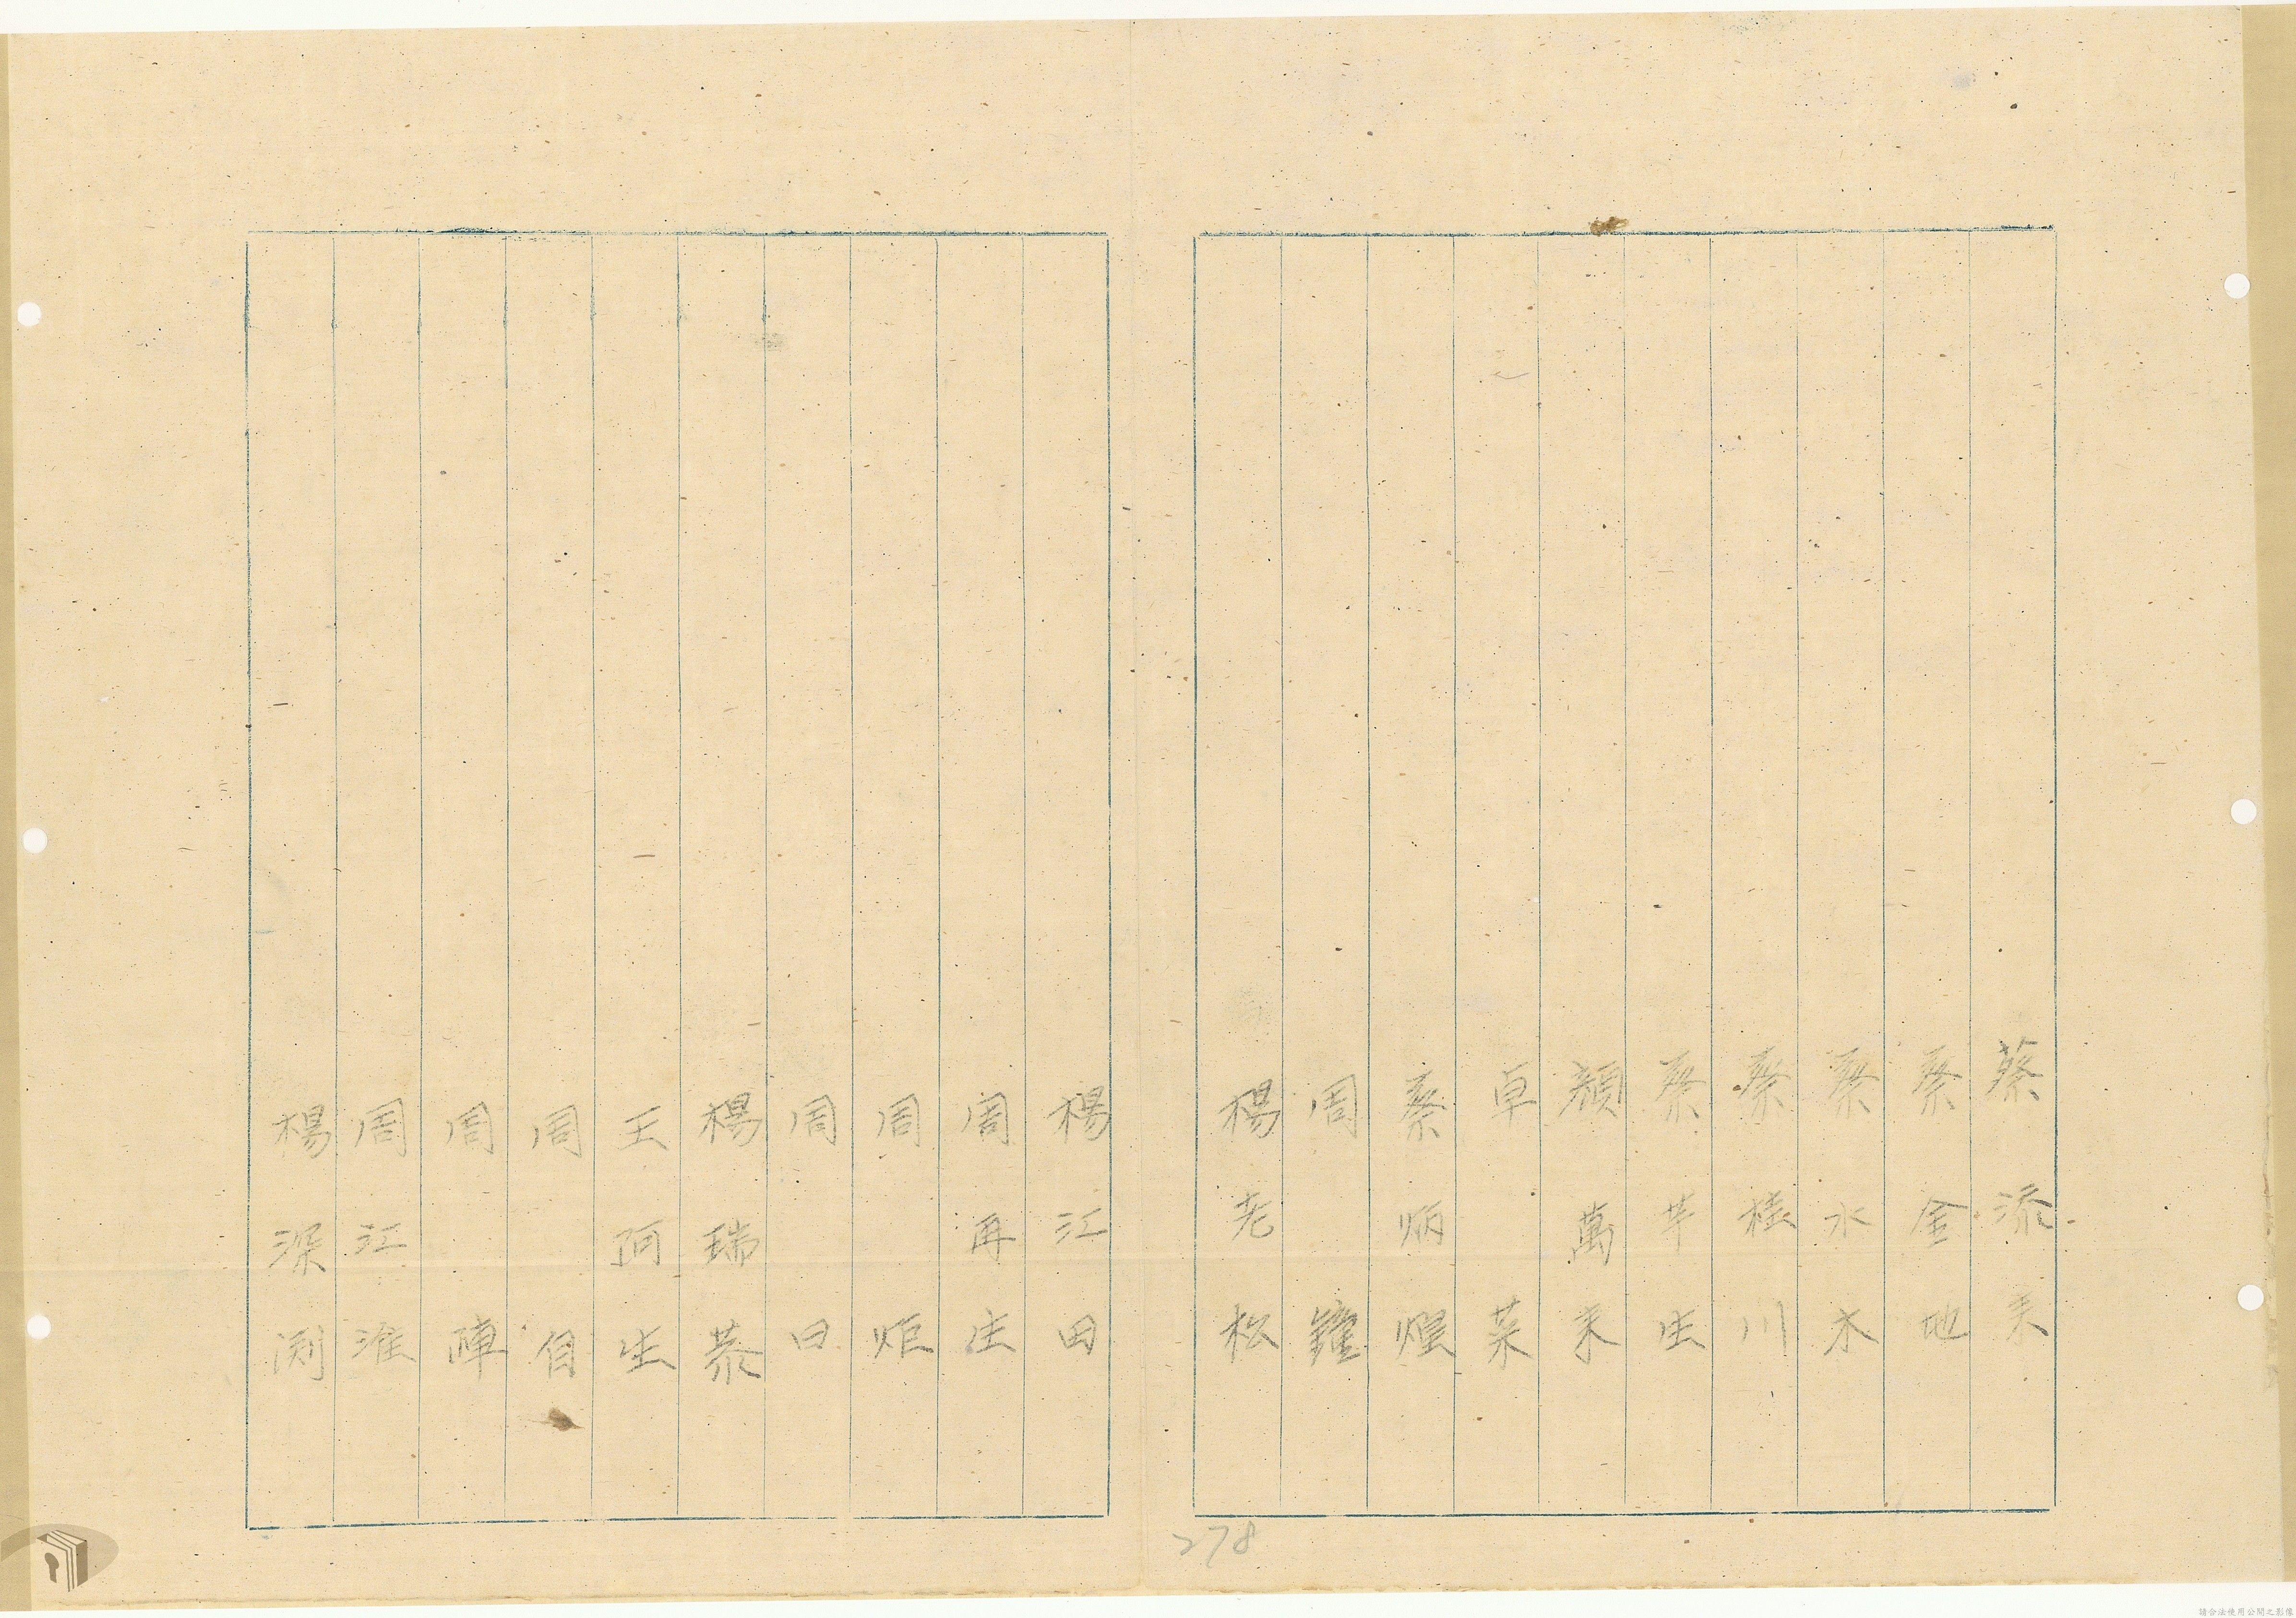 蔡流
蔡金地
蔡水木
蔡桂川
蔡芋生
顏萬来
卓菜
蔡炳煌
周鐘
楊老松
楊江田
周再生
周炬
周曰
楊瑞恭
王阿生
周自
周陣
周江淮
楊深渕
278
請合法使用公開之影像